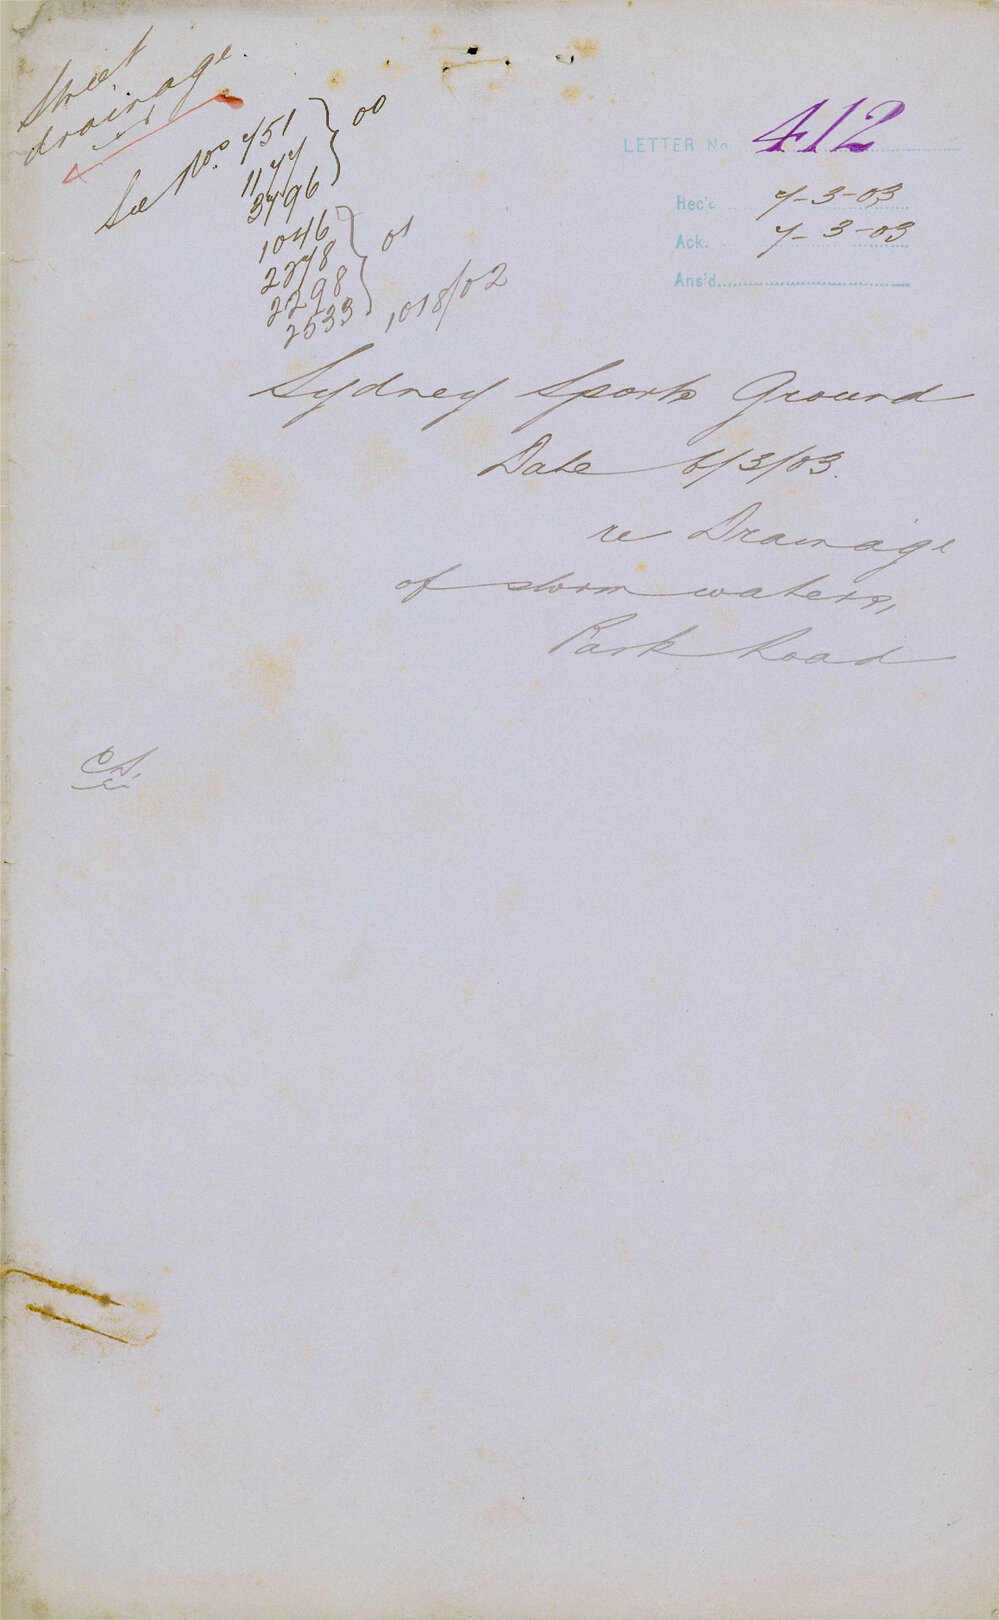 Street
drainage.
See Nos 751
1177
3796
} 00
1046
2278
2298
2533
} 01
1018/02
LETTER No 412
Rec'd 7-3-03
Ack. 7-3-03
Ans'd
Sydney Sports Ground
Date 6/3/03.
re Drainage
of storm waters,
Park Road